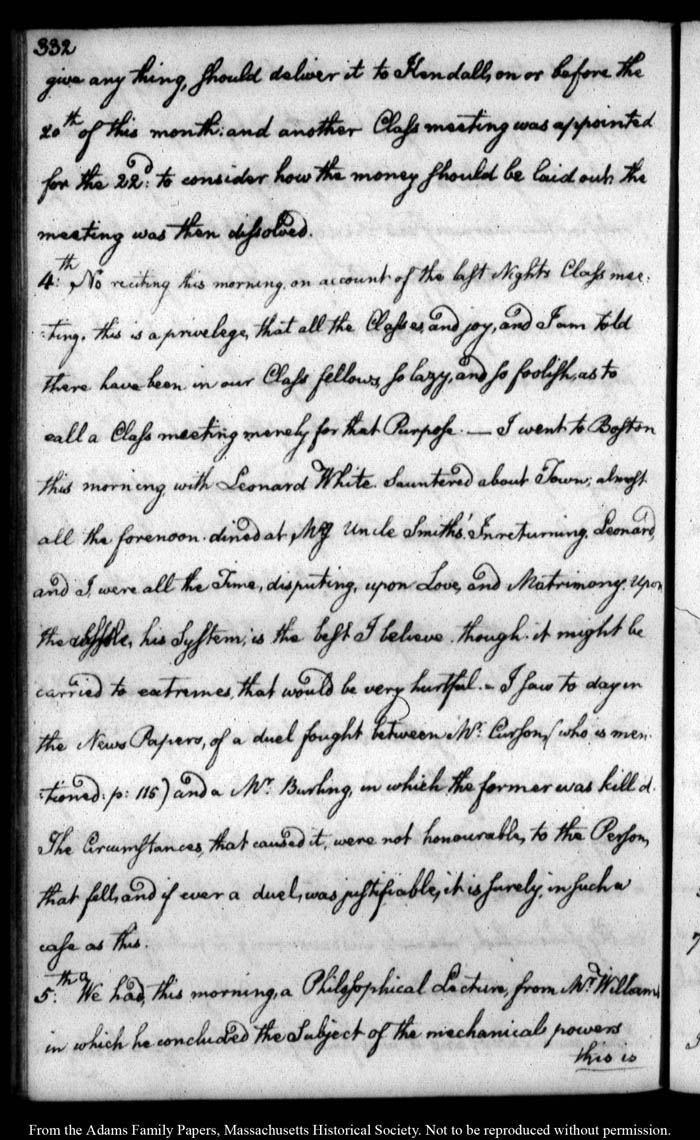 332
give any thing, should deliver it to Kendall, on or before the
20th of this month: and another Class meeting was appointed
for the 22d: to consider how the money should be laid out: the
meeting was then dissolved.
4:th No reciting this morning, on account of the last Nights Class mee-
-ting. this is a privelege, that all the Classes, and joy, and I am told
there have been in our Class fellows, so lazy, and so foolish, as to
call a Class meeting merely for that Purpose. — I went to Boston
this morning with Leonard White. Sauntered about Town; almost
all the forenoon. dined at My Uncle Smith's. In returning Leonard,
and I were all the Time, disputing, upon Love, and Matrimony. Upon
the whole, his System, is the best I believe. though it might be
carried to extremes, that would be very hurtful. — I saw to day in
the News Papers, of a duel fought between Mr. Curson, (who is men-
-tioned: p: 115) and a Mr. Burling, in which the former was kill'd.
The Circumstances, that caused it, were not honourable, to the Person,
that fell, and if ever a duel, was justifiable, it is surely, in such a
case as this.
5:th We had, this morning, a Philosophical Lecture, from Mr. Williams
in which he concluded the Subject of the mechanical powers
this is
From the Adams Family Papers, Massachusetts Historical Society. Not to be reproduced without permission.